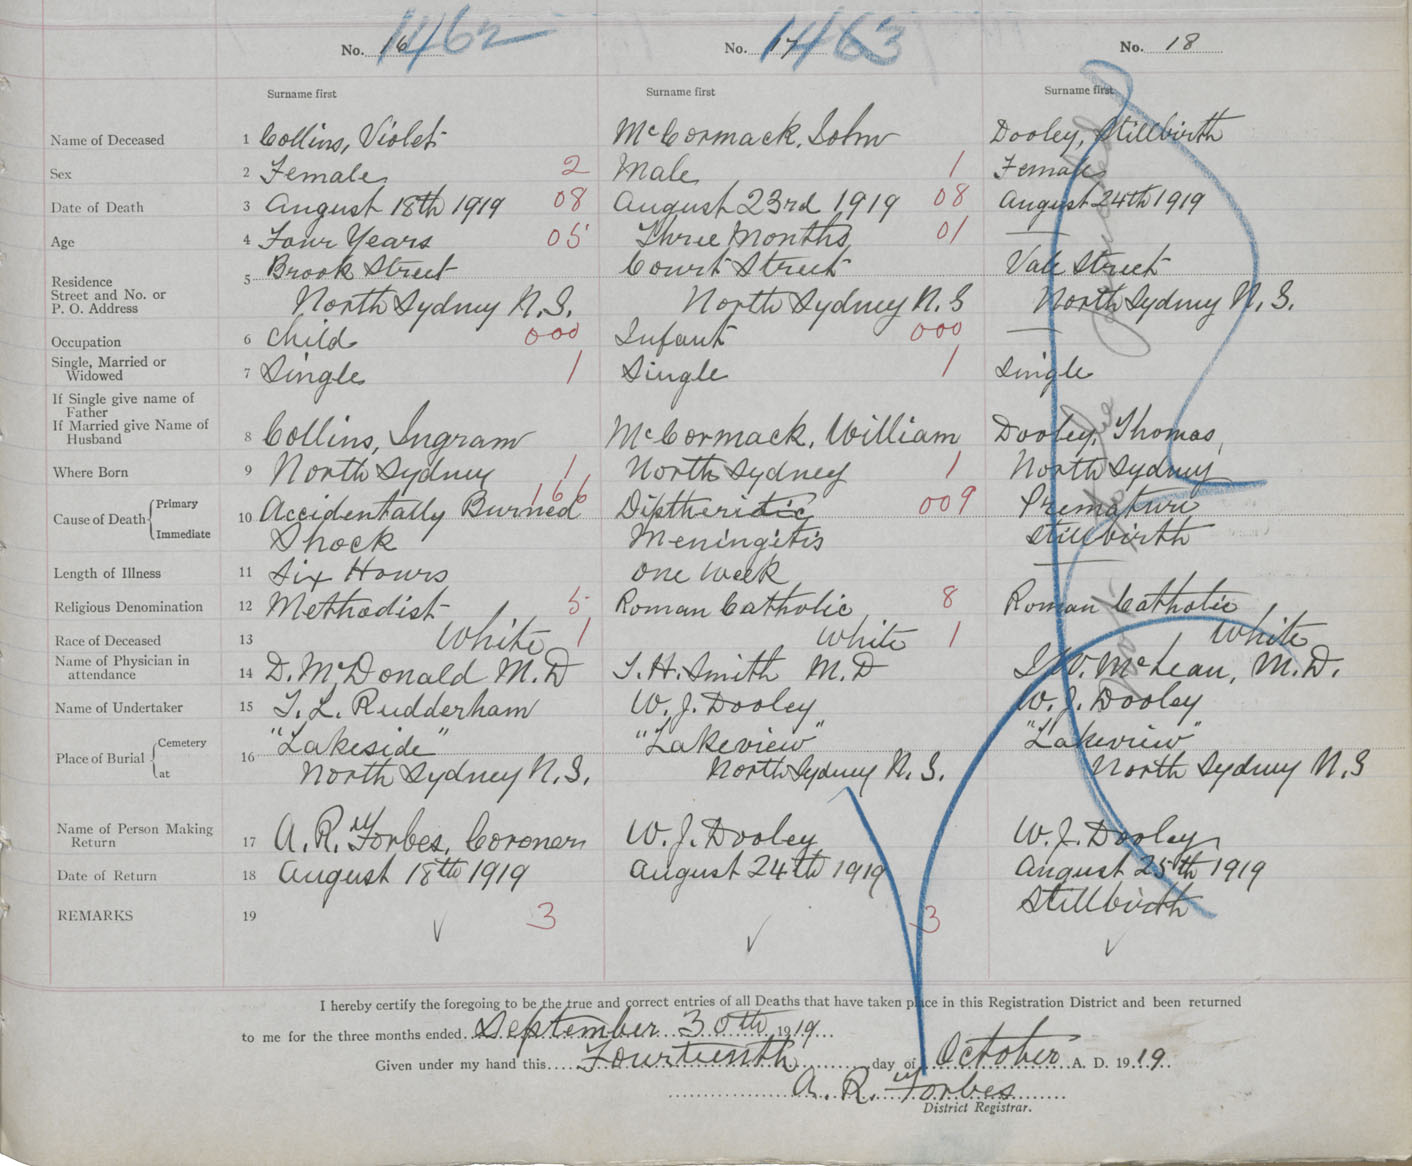 No. 16 1462 No. 17 1463 No. 18
Surname first Surname first Surname first
Name of Deceased 1 Collins, Violet McCormack, John Dooley, Stillbirth
Sex 2 Female 2 Male 1 Female
Date of Death 3 August 18th 1919 08 August 23rd 1919 08 August 24th 1919
Age 4 Four Years 05 Three Months 01 —
Residence
Street and No. or
P. O. Address
5 Brook Street Court Street Vale Street
North Sydney N.S. North Sydney N.S North Sydney N.S.
Occupation 6 Child 000 Infant 000 —
Single, Married or
Widowed
7 Single 1 Single 1 Single
If Single give name of
Father
If Married give Name of
Husband
8 Collins, Ingram McCormack, William Dooley, Thomas,
Where Born 9 North Sydney 1 North Sydney 1 North Sydney
Cause of Death { Primary
Immediate
10 Accidentally Burned 166 Diptheritic 009 Premature
Shock Meningitis Stillbirth
Length of Illness 11 Six Hours One Week —
Religious Denomination 12 Methodist 5 Roman Catholic 8 Roman Catholic
Race of Deceased 13 White 1 White 1 White
Name of Physician in
attendance
14 D. McDonald M.D J.H. Smith M.D J.W. McLean, M.D.
Name of Undertaker 15 J. L. Rudderham W. J. Dooley W. J. Dooley
Place of Burial { Cemetery
at
16 "Lakeside" "Lakeview" "Lakeview"
North Sydney N.S. North Sydney N.S. North Sydney N.S
Name of Person Making
Return
17 A. R. Forbes, Coroner W. J. Dooley W. J. Dooley
Date of Return 18 August 18th 1919 August 24th 1919 August 25th 1919
REMARKS 19 3 3 Stillbirth
I hereby certify the foregoing to be the true and correct entries of all Deaths that have taken place in this Registration District and been returned
to me for the three months ended September 30th 1919
Given under my hand this Fourteenth day of October A. D. 1919
A. R. Forbes
District Registrar.